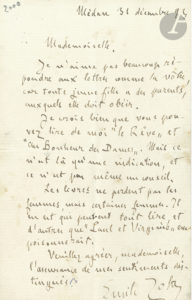 2000
Médan 31 décembre 92
Mademoiselle,
Je n'aime pas beaucoup ré-
pondre aux lettres comme la vôtre
car toute jeune fille a des parents,
auxquels elle doit obéir.
Je crois bien que vous pou-
vez lire de moi "le Rêve" et
"Au Bonheur des Dames". Mais ce
n'est là qu'une indication, et
ce n'est pas même un conseil.
Les livres ne perdent pas les
femmes mais certaines femmes. Il
en est qui peuvent tout lire, et
d'autres que "Paul et Virginie" em-
poisonnerait.
Veuillez agréer, mademoiselle
l'assurance de mes sentiments dis-
tingués
Emile Zola